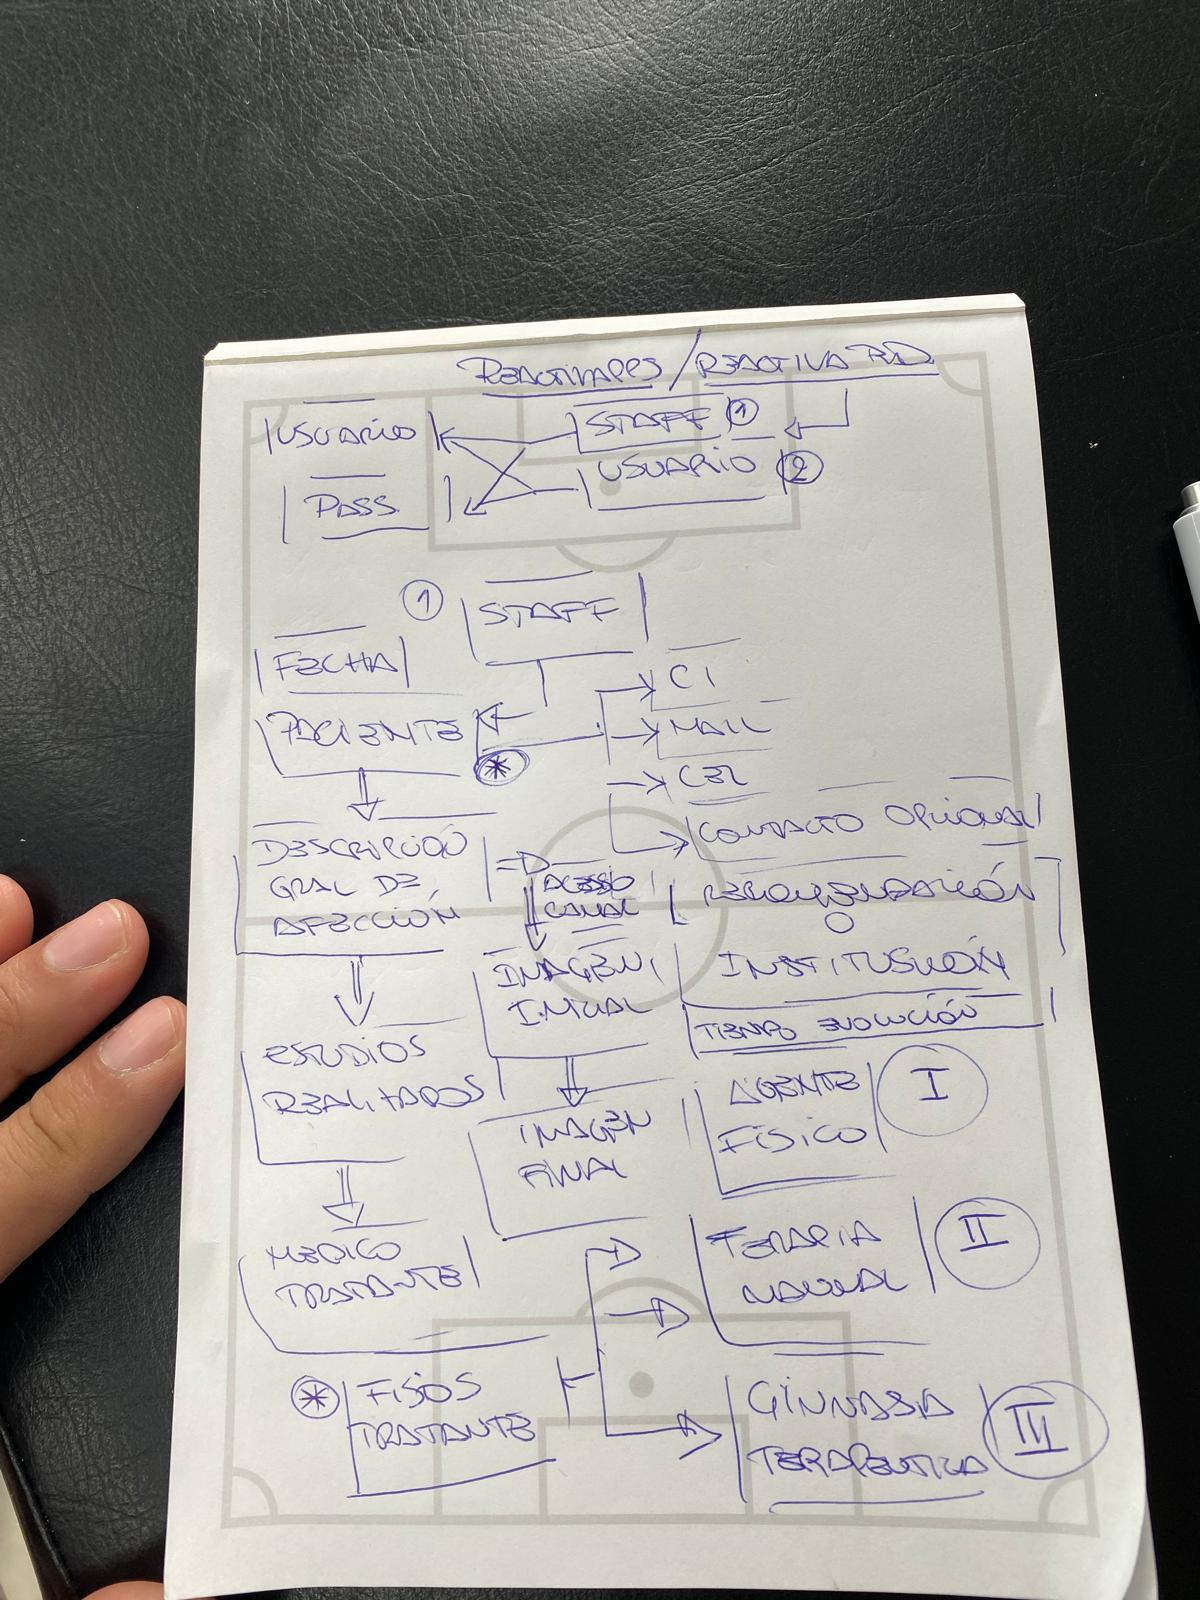 REACTIVAPPS / REACTIVA PID
USUARIO
STAFF 1
PASS.
USUARIO 2
1 STAFF
FECHA
CI
PACIENTE
MAIL
*
CEL
CONTACTO OPCIONAL
DESCRIPCIÓN
GRAL DE
AFECCIÓN
ACESO
CANAL
RECOMENDACIÓN
O
INSTITUSIÓN
IMAGEN
INICIAL
TIEMPO EVOLUCIÓN
ESTUDIOS
REALIZADOS
AGENTE
FÍSICO
I
IMAGEN
FINAL
MEDICO
TRATANTE
TERAPIA
MANUAL
II
* FISIOS
TRATANTE
GINNASIA
TERAPEUTICA
III